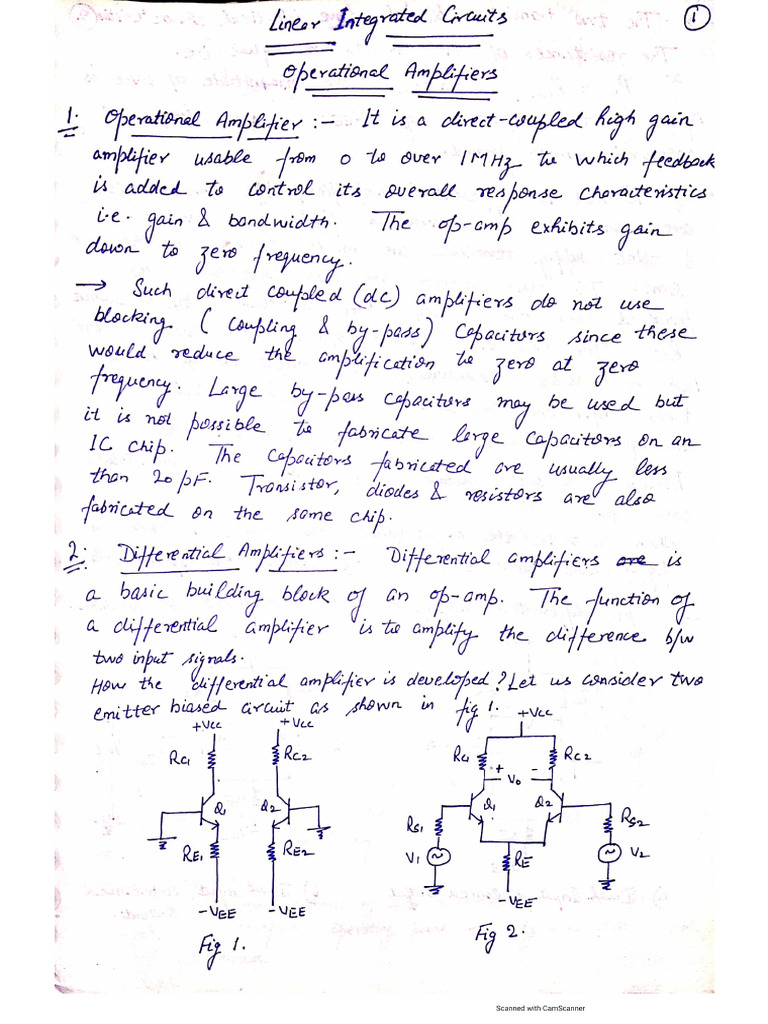 Linear Integrated Circuits
1
Operational Amplifiers
1. Operational Amplifier :- It is a direct-coupled high gain
amplifier usable from 0 to over 1MHz to which feedback
is added to control its overall response characteristics
i.e. gain & bandwidth. The op-amp exhibits gain
down to zero frequency.
→ Such direct coupled (dc) amplifiers do not use
blocking (coupling & by-pass) capacitors since these
would reduce the amplification to zero at zero
frequency. Large by-pass capacitors may be used but
it is not possible to fabricate large capacitors on an
IC chip. The capacitors fabricated are usually less
than 20 pF. Transistor, diodes & resistors are also
fabricated on the same chip.
2. Differential Amplifiers :- Differential amplifiers are is
a basic building block of an op-amp. The function of
a differential amplifier is to amplify the difference b/w
two input signals.
How the differential amplifier is developed? Let us consider two
emitter biased circuit as shown in fig 1.
+VCC +VCC +VCC
RC1 RC2 RC1 RC2
+ Vo -
Q1 Q2 Q1 Q2
RS1 RS2
RE1 RE2 V1 RE V2
-VEE -VEE -VEE
Fig 1. Fig 2.
Scanned with CamScanner